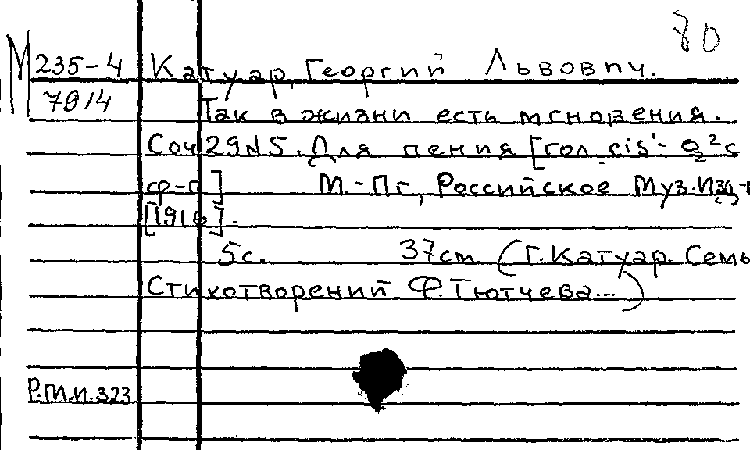 80
М 235-4 Катуар, Георгий Львович.
7014 Так в жизни есть мгновения.
Соч 29 №5. Для пения [гол. cis'- g² с
ф-п] М.-Пг, Российское Муз. Изд-
[1916].
5с. 37см (Г. Катуар. Семь
Стихотворений Ф. Тютчева...)
Р.М.И. 323